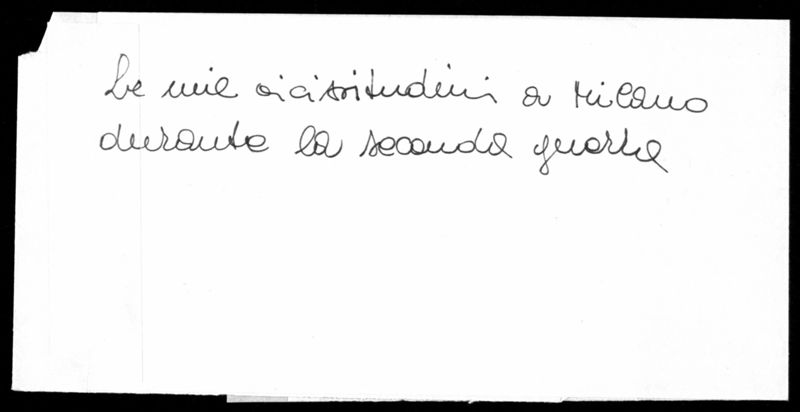 Le mie vicissitudini a Milano
durante la seconda guerra